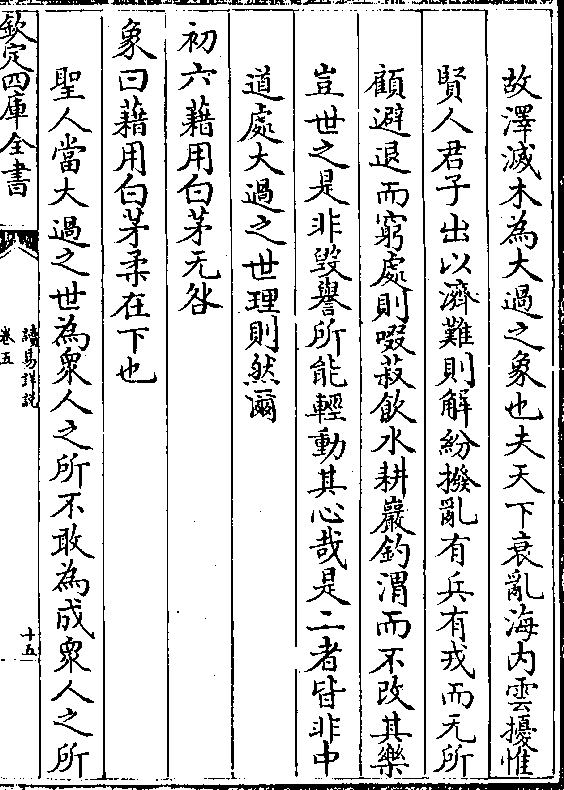 故澤滅木為大過之象也夫天下衰亂海内雲擾惟
賢人君子出以濟難則解紛撥亂有兵有戎而无所
顧避退而窮處則啜菽飲水耕巖釣渭而不改其樂
豈世之是非毀譽所能輕動其心哉是二者皆非中
道處大過之世理則然爾
初六藉用白茅无咎
象曰藉用白茅柔在下也
聖人當大過之世為衆人之所不敢為成衆人之所
欽定四庫全書
讀易詳說
卷五
十五